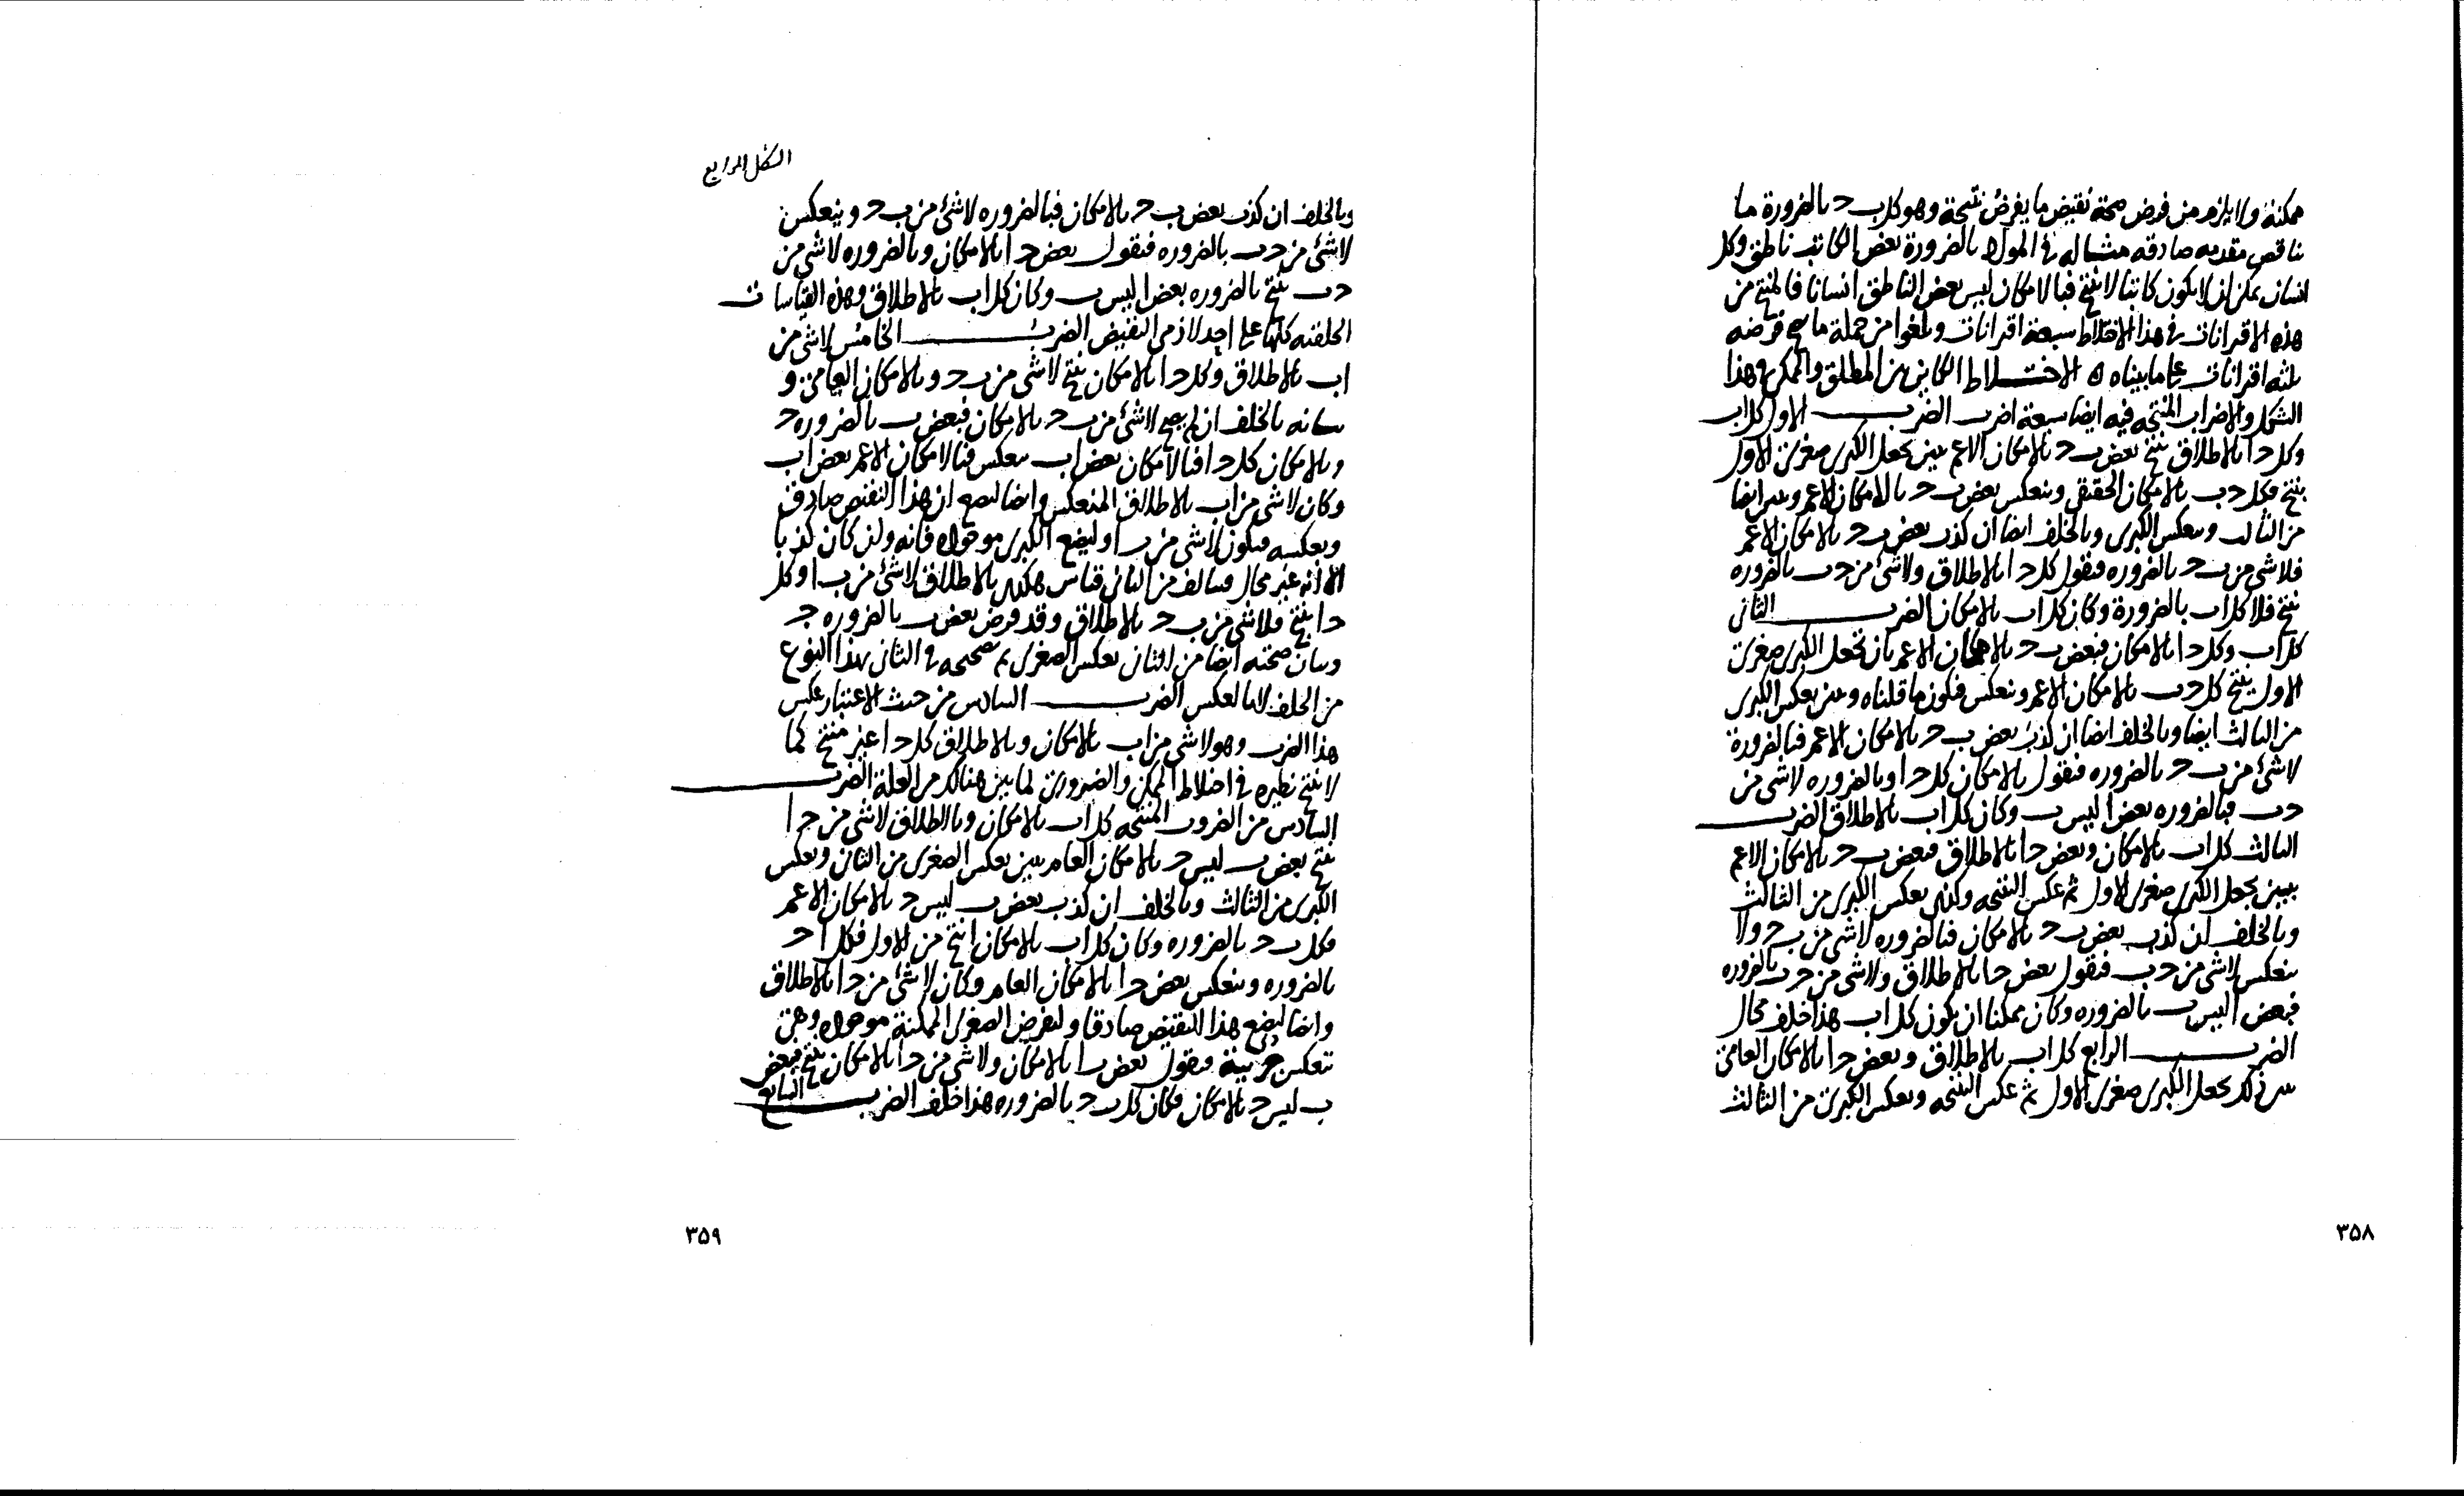 ممكنة ولا يلزم من فرض صحة نقيض ما يفرض نتيجة وهو كل ب ح بالضرورة ما
يناقض مقدمه صادقه مثاله في المواد بالضرورة بعض الكاتب ناطق وكل
انسان يمكن ان لا يكون كاتبا لا ينتج فبالامكان ليس بعض الناطق انسانا فالمنتج من
هذه الاقترانات في هذا الاختلاط سبعة اقترانات ويلغوا من جملة ما صح فرضه
ثلثه اقترانات على ما بيناه ه الاختلاط الكاين من المطلق والممكن في هذا
الشكل والاضراب المنتجه فيه ايضا سبعة اضرب الضرب الاول كل اب
وكل ح ا بالاطلاق ينتج بعض ب ح بالامكان الاعم يبين بجعل الكبرى صغرى الاول
ينتج فكل ح ب بالامكان الحقيقي وينعكس بعض ب ح بالامكان الاعم وتبين ايضا
من الثالث وبعكس الكبرى وبالخلف ايضا ان كذب بعض ب ح بالامكان الاعم
فلاشي من ب ح بالضروره فنقول كل ح ا بالاطلاق ولاشئ من ح ب بالضروره
ينتج فلا كل اب بالضرورة وكان كل اب بالامكان الضرب الثاني
كل اب وكل ح ا بالامكان فبعض ب ح بالامكان الاعم بان تجعل الكبرى صغرى
الاول ينتج كل ح ب بالامكان الاعم وتنعكس فيكون ما قلناه وتبين بعكس الكبرى
من الثالث ايضا وبالخلف ايضا ان كذب بعض ب ح بالامكان الاعم فبالضرورة
لاشئ من ب ح بالضروره فنقول بالامكان كل ح ا وبالضروره لاشي من
ح ب فبالضروره بعض ا ليس ب وكان كل اب بالاطلاق الضرب
الثالث كل اب بالامكان وبعض ح ا بالاطلاق فبعض ب ح بالامكان الاعم
يبين بجعل الكبرى صغرى الاول ثم عكس النتيجه ولكن بعكس الكبرى من الثالث
وبالخلف ان كذب بعض ب ح بالامكان فبالضروره لاشي من ب ح ولا
ينعكس لاشي من ح ب فنقول بعض ح ا بالاطلاق ولاشي من ح ب بالضروره
فبعض ا ليس ب بالضروره وكان ممكنا ان يكون كل اب هذا خلف محال
الضرب الرابع كل اب بالاطلاق وبعض ح ا بالامكان العامي
بين ذلك بجعل الكبرى صغرى الاول ثم عكس النتيجه وبعكس الكبرى من الثالث
٣٥٨
الشكل الرابع
وبالخلف ان كذب بعض ب ح بالامكان فبالضروره لاشئ من ب ح وينعكس
لاشئ من ح ب بالضروره فنقول بعض ح ا بالامكان وبالضروره لاشي من
ح ب ينتج بالضروره بعض ا ليس ب وكان كل اب بالاطلاق وهذه القياسات
الخلفيه كلها على احد لازمي النقيض الضرب الخامس لاشي من
اب بالاطلاق وكل ح ا بالامكان ينتج لاشي من ب ح وبالامكان العامي و
بيانه بالخلف ان لم يصح لاشئ من ب ح بالامكان فبعض ب بالضروره ح
وبالامكان كل ح ا فبالامكان بعض اب ينعكس فبالامكان الاعم بعض اب
وكان لاشي من اب بالاطلاق المنعكس وايضا ليضع ان هذا النقيض صادق
وبعكسه فيكون لاشي من ب ا وليضع الكبرى موجوده فانه وان كان كذبا
الا انه غير محال فيتالف من الثاني قياس هكذى بالاطلاق لاشئ من ب ا وكل
ح ا ينتج فلاشي من ب ح بالاطلاق وقد فرض بعض ب بالضروره ج
وبيان صحته ايضا من الثاني بعكس الصغرى ثم تصحيحه في الثاني بهذا النوع
من الخلف لا بالعكس الضرب السادس من حيث الاعتبار عكس
هذا الضرب وهو لاشي من اب بالامكان وبالاطلاق كل ح ا غير منتج كما
لا ينتج نظيره في اختلاط الممكن والضروري لما بين هنالك من العلة الضرب
السادس من الضروب المنتجه كل اب بالامكان وبالاطلاق لاشي من ح ا
ينتج بعض ب ليس ح بالامكان العام يبين بعكس الصغرى من الثاني وبعكس
الكبرى من الثالث وبالخلف ان كذب بعض ب ليس ح بالامكان الاعم
فكل ب ح بالضروره وكان كل اب بالامكان انتج من الاول فكل ا ح
بالضروره وينعكس بعض ح ا بالامكان العام وكان لاشئ من ح ا بالاطلاق
وايضا ليضع هذا النقيض صادقا وليفرض الصغرى الممكنة موجوده وهي
تنعكس جزيية فنقول بعض ب ا بالامكان ولاشي من ح ا بالامكان ينتج فبعض
ب ليس ح بالامكان فكان كل ب ح بالضروره هذا خلف الضرب السابع
٣٥٩